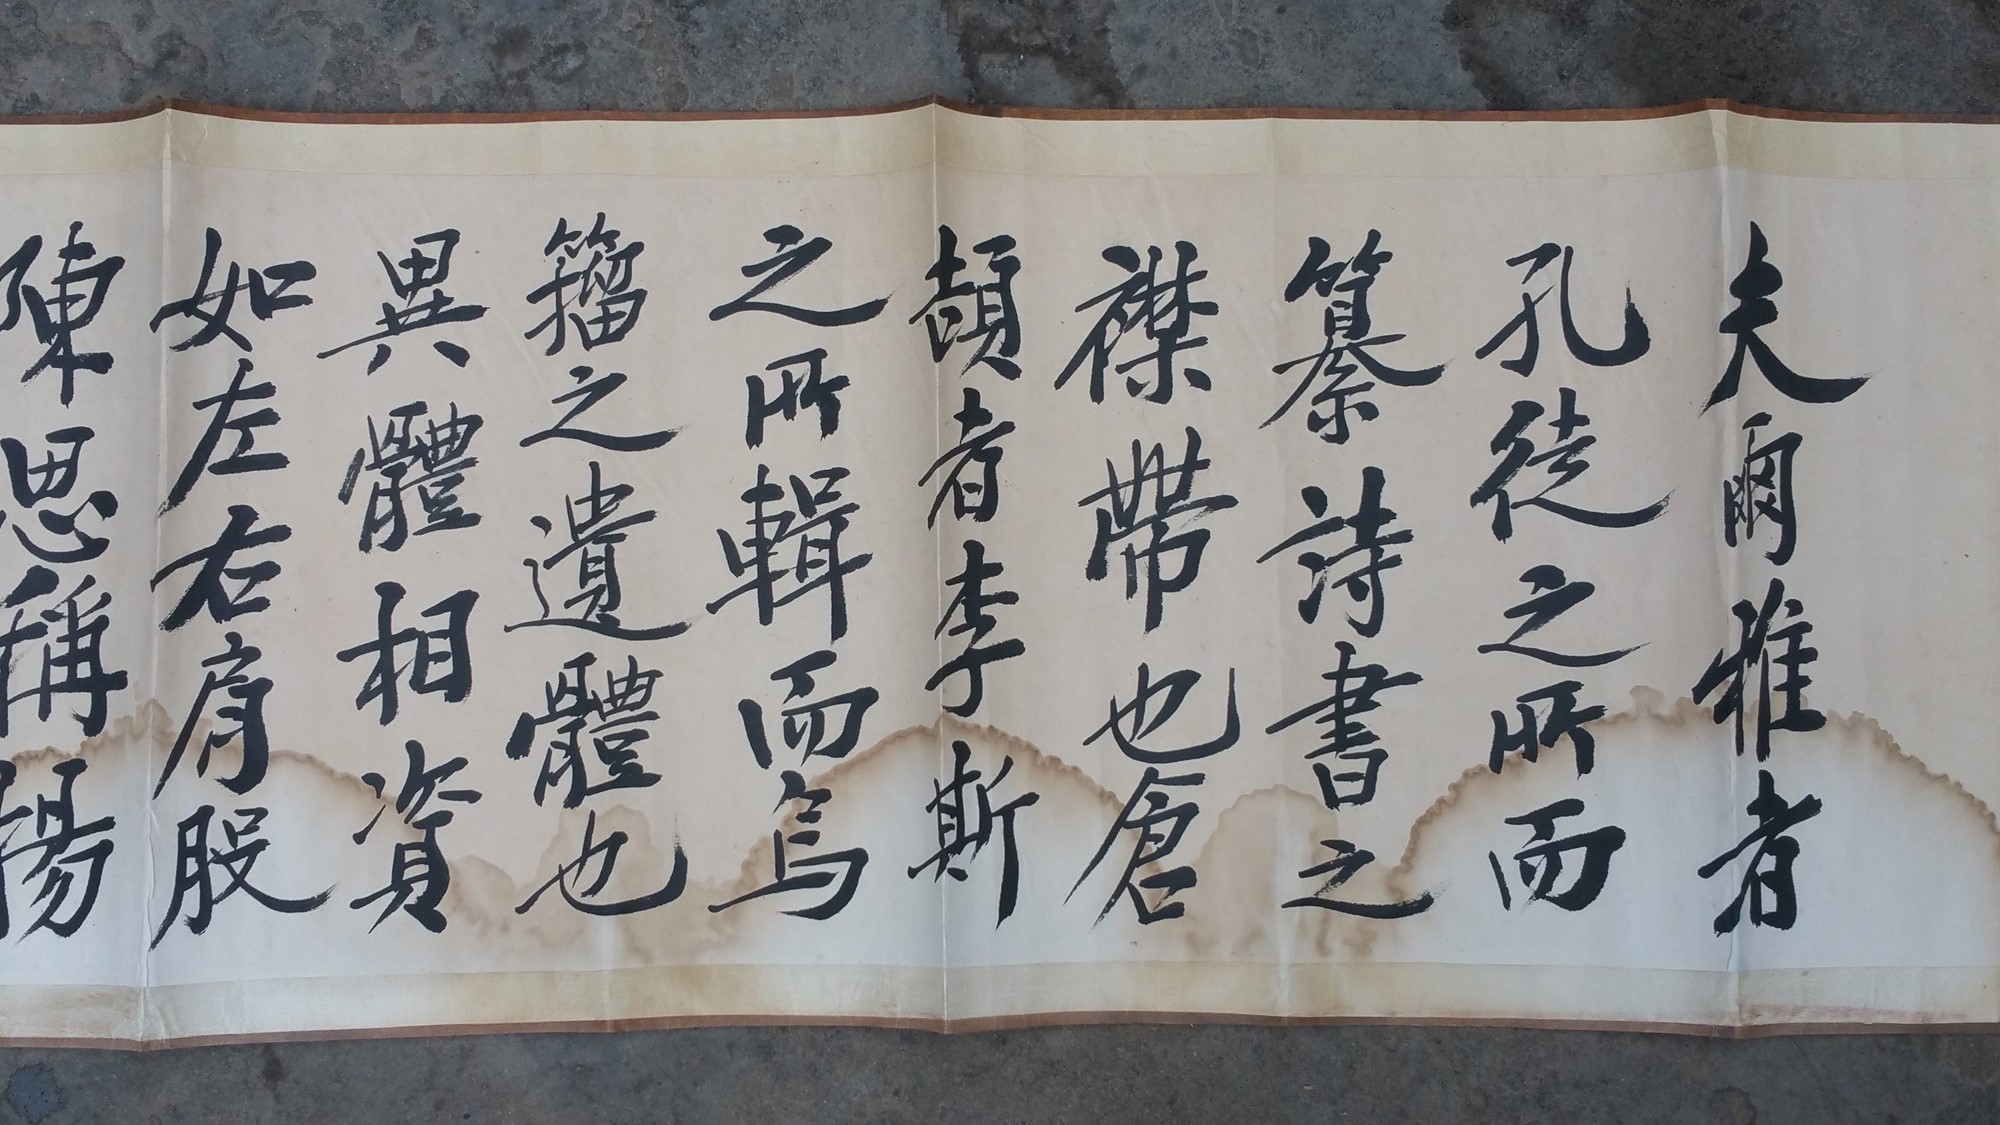 夫爾雅者
孔徒之所而
纂詩書之
襟帶也倉
頡者李斯
之所輯而鳥
籀之遺體也
異體相資
如左右肩股
陳思稱揚